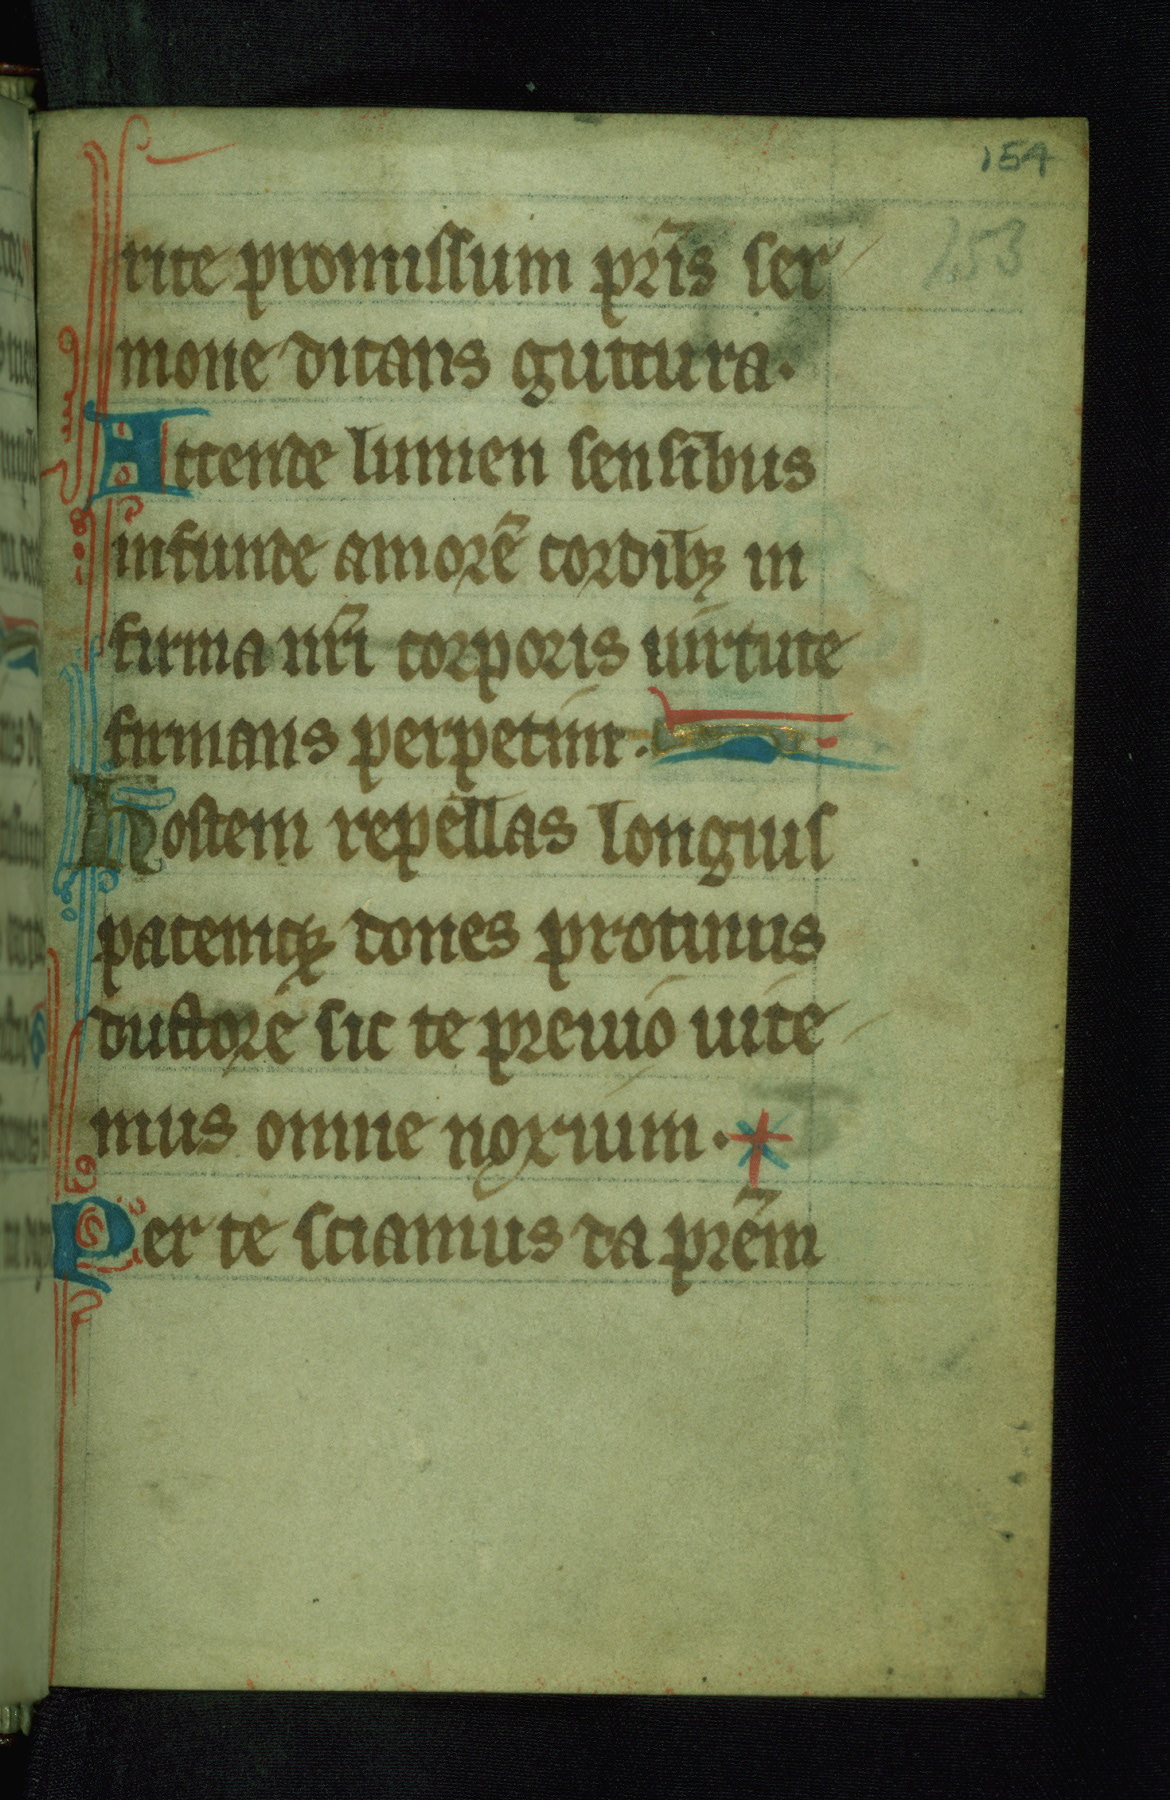 154
153
rite promissum pr̃is ser
mone ditans guttura.
Accende lumen sensibus
infunde amorē cordibꝫ in
firma nr̃i corporis uirtute
firmans perpetim.
Hostem repellas longius
pacemqꝫ dones protinus
ductorē sic te preuio uite
mus omne noxium.
Per te sciamus da pr̃em